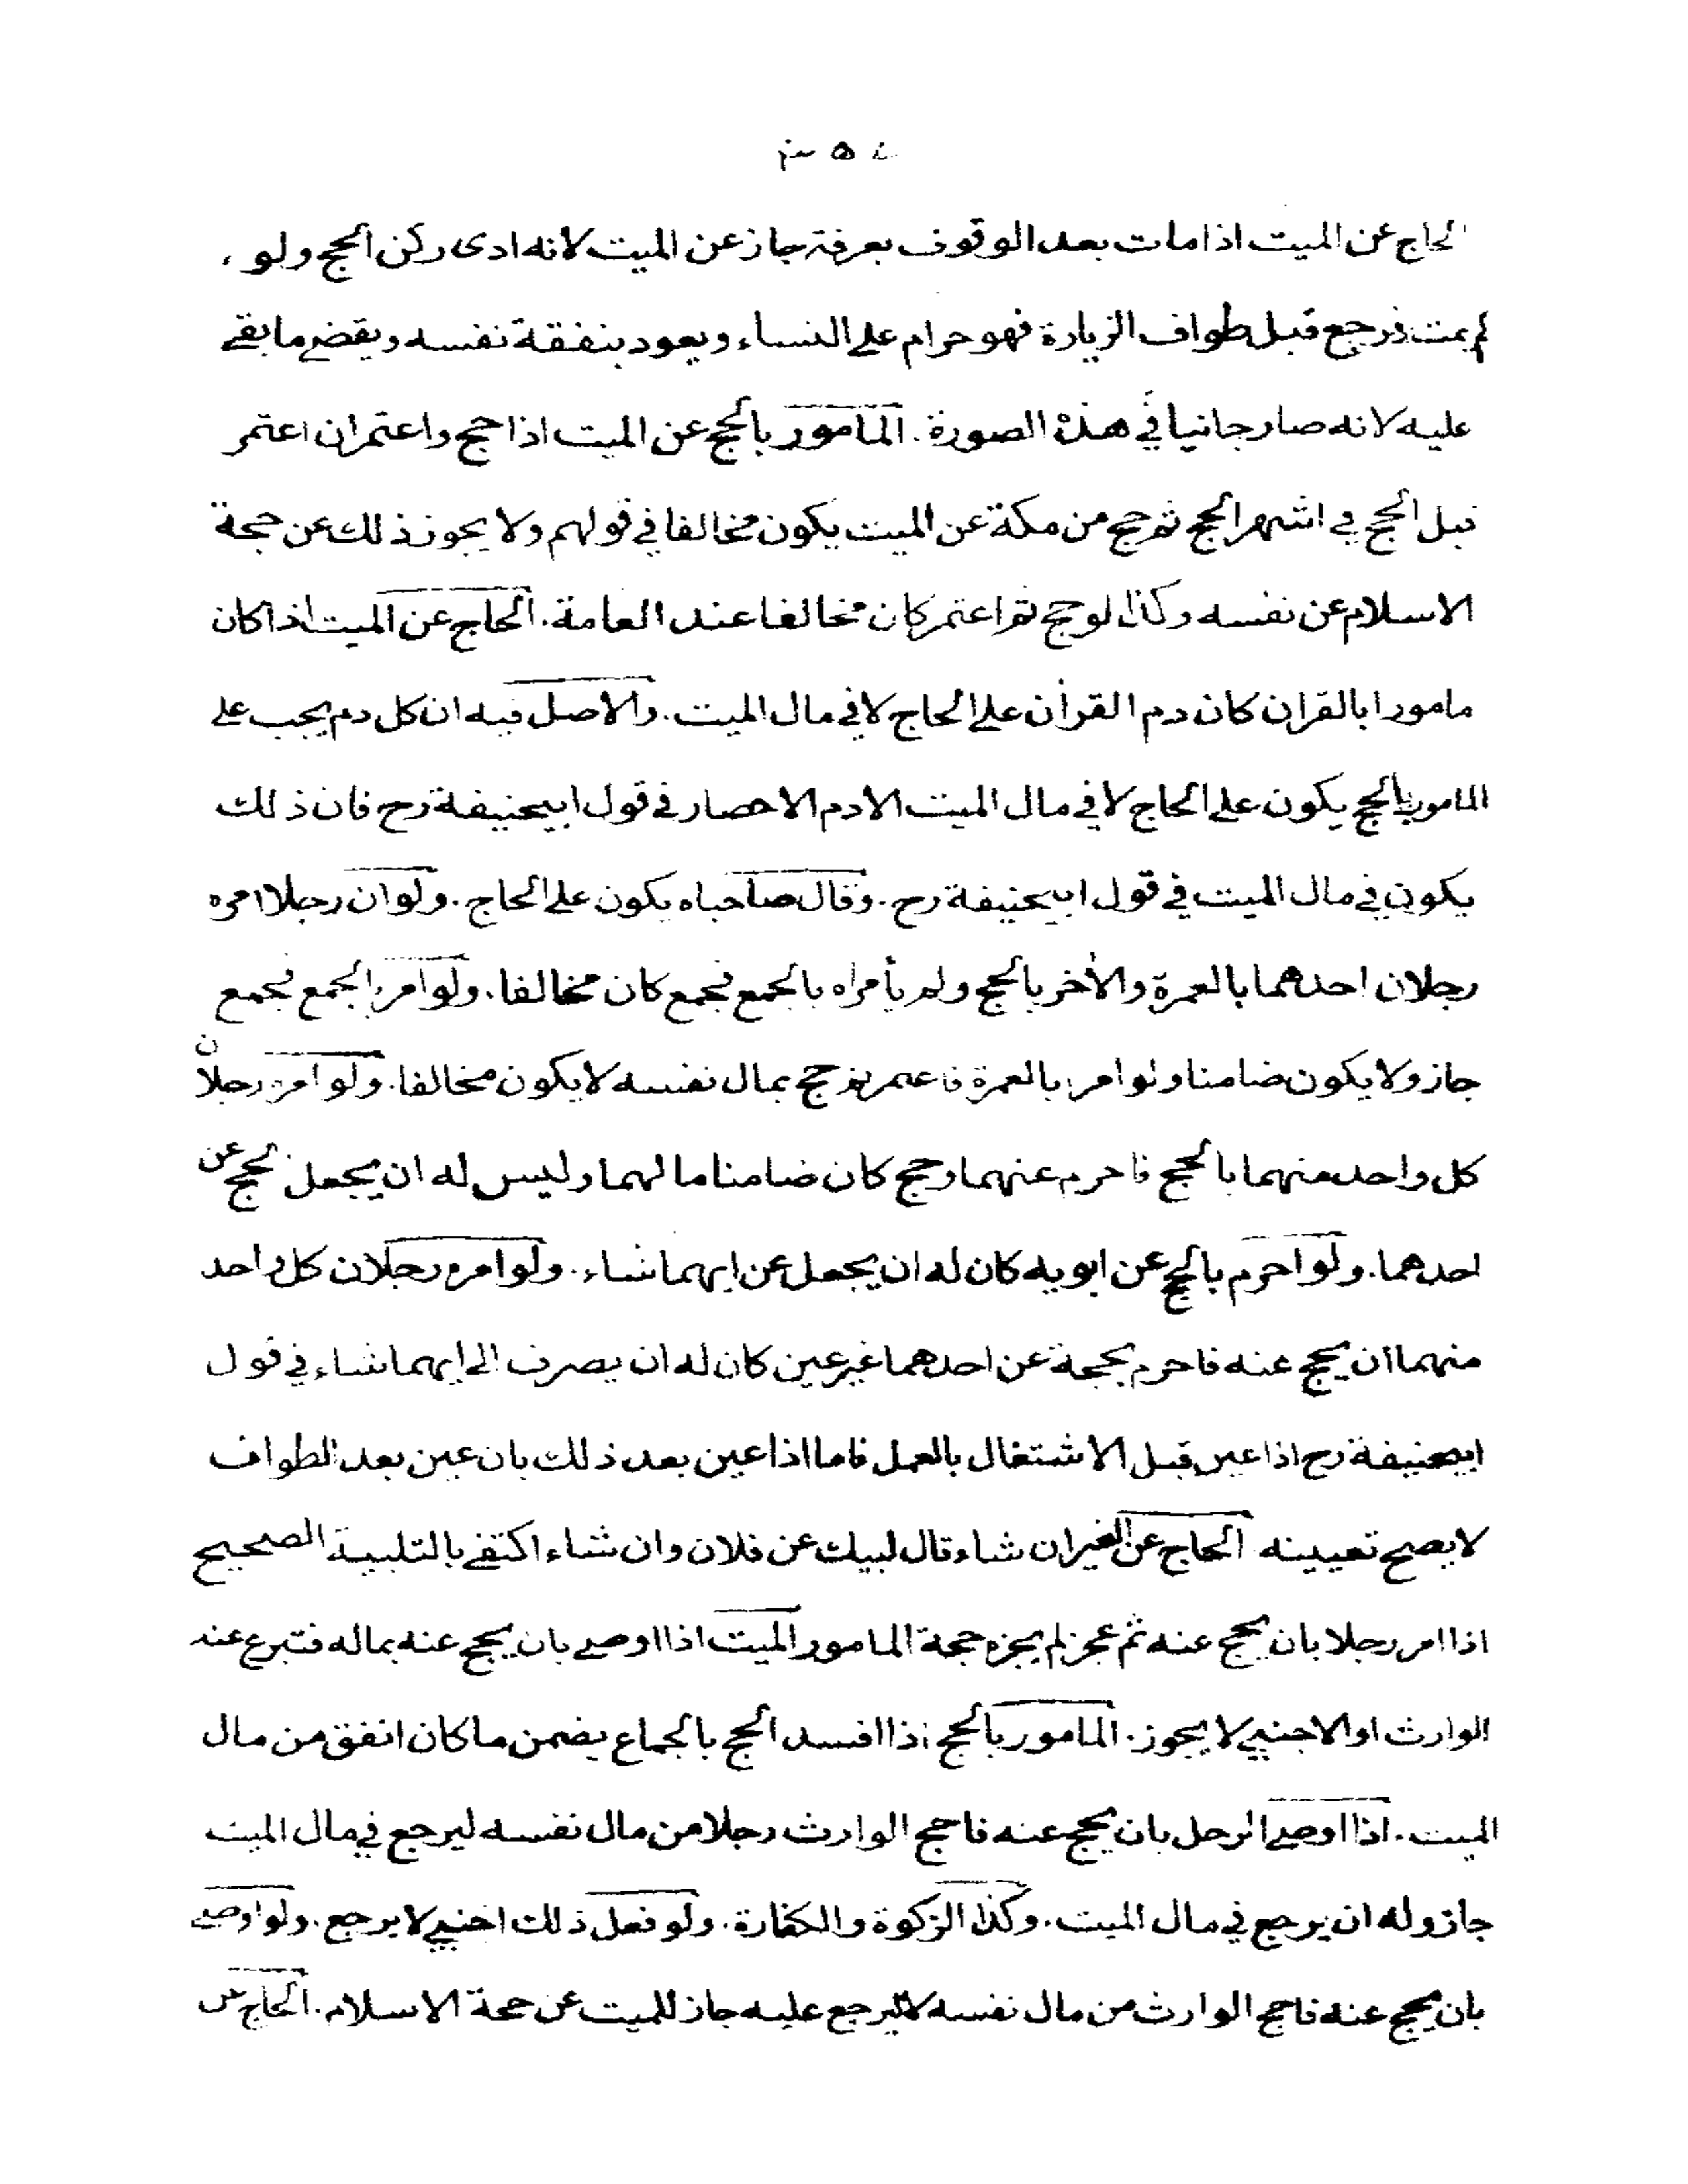 الحاج عن الميت اذا مات بعد الوقوف بعرفة جاز عن الميت لانه ادى ركن الحج ولو
لم يمت فرجع قبل طواف الزيارة فهو حرام على النساء ويعود بنفقة نفسه ويقضي ما بقي
عليه لانه صار جانيا في هذه الصورة. المامور بالحج عن الميت اذا حج واعتمر ان اعتمر
قبل الحج في اشهر الحج ثم حج من مكة عن الميت يكون مخالفا في قولهم ولا يجوز ذلك عن حجة
الاسلام عن نفسه وكذا لو حج ثم اعتمر كان مخالفا عند العامة. الحاج عن الميت اذا كان
مامورا بالقران كان دم القرأن على الحاج لا في مال الميت. والاصل فيه ان كل دم يجب على
المامور بالحج يكون على الحاج لا في مال الميت الا دم الاحصار في قول ابيحنيفة رح فان ذلك
يكون في مال الميت في قول ابيحنيفة رح. وقال صاحباه يكون على الحاج. ولو ان رجلا امره
رجلان احدهما بالعمرة والأخر بالحج ولم يأمراه بالجمع فجمع كان مخالفا. ولو امرا بالجمع فجمع
جاز ولا يكون ضامنا ولو امر بالعمرة فاعتمر ثم حج بمال نفسه لا يكون مخالفا. ولو امره رجلان
كل واحد منهما بالحج فاحرم عنهما وحج كان ضامنا ما لهما وليس له ان يجعل الحج عن
احدهما. ولو احرم بالحج عن ابويه كان له ان يجعل عن ايهما شاء. ولو امره رجلان كل واحد
منهما ان يحج عنه فاحرم بحجة عن احدهما غير عين كان له ان يصرف الى ايهما شاء في قول
ابيحنيفة رح اذا عين قبل الاشتغال بالعمل فاما اذا عين بعد ذلك بان عين بعد الطواف
لا يصح تعيينه الحاج عن الغير ان شاء قال لبيك عن فلان وان شاء اكتفى بالتلبية الصحيح
اذا امر رجلا بان يحج عنه ثم عجز لم يجزه حجة المامور الميت اذا اوصى بان يحج عنه بماله فتبرع عنه
الوارث او الاجنبي لا يجوز. المامور بالحج اذا افسد الحج بالجماع يضمن ما كان انفق من مال
الميت. اذا اوصى الرجل بان يحج عنه فاحج الوارث رجلا من مال نفسه ليرجع في مال الميت
جاز وله ان يرجع في مال الميت. وكذا الزكوة والكفارة. ولو فعل ذلك اجنبي لا يرجع. ولو اوصى
بان يحج عنه فاحج الوارث من مال نفسه لا ليرجع عليه جاز للميت عن حجة الاسلام. الحاج عن